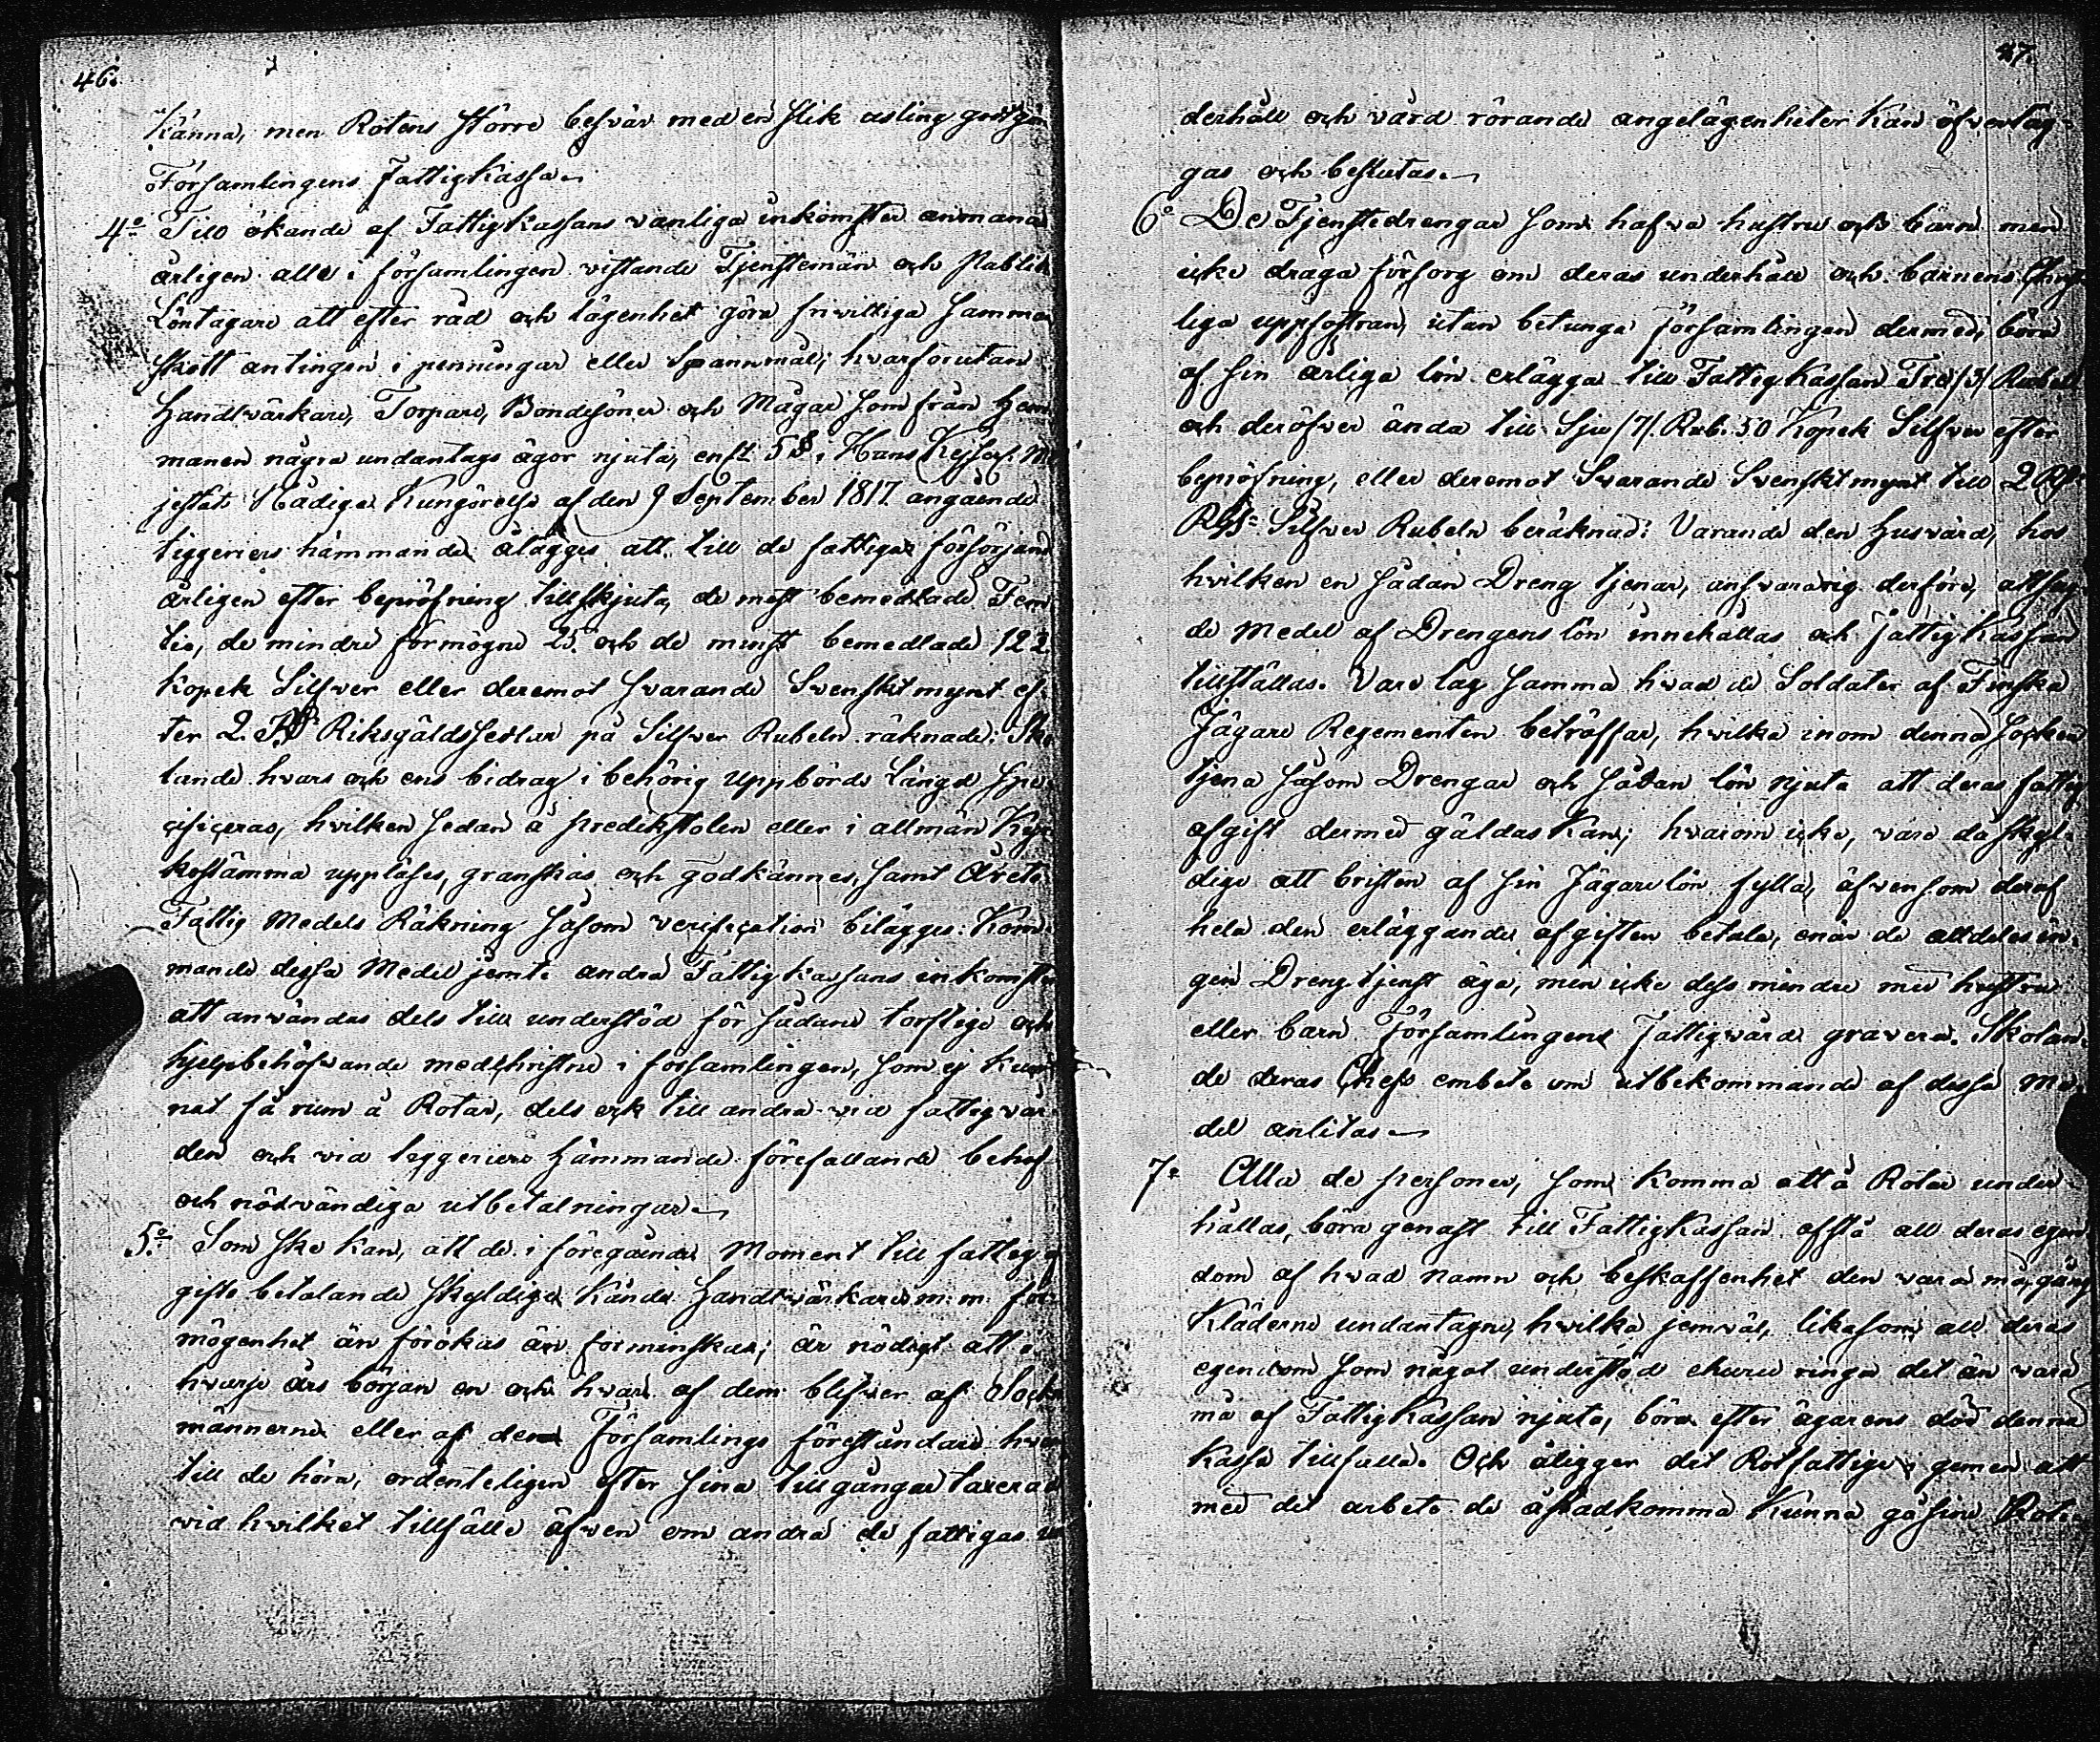 46.
Känna, men Rotens större besvär med en slik usling godtgör
Församlingens Fattigkassa.
4:o Till ökande af Fattigkassans vanliga inkomster anmanas
årligen alla i församlingen vistande Tjenstemän och Publik
Löntagare att efter råd och lägenhet göra frivilliga samman
skott antingen i penningar eller Spannmål; hvarförutan
Handtvärkare, Torpare, Bondesöner och Mågar som från Hem
manen några undantags ägor njuta, enl: 5 §. i Hans Kejserl: Ma
jestäts Nådiga Kungörelse af den 9 September 1817 angående
tiggeriers hämmande ålägges att till de fattigas försörjande
årligen efter bepröfning tillskjuta, de mest bemedlade Fem
tio, de mindre förmögne 25. och de minst bemedlade 12 ½
Kopek Silfver eller deremot svarande Svenskt mynt ef
ter 2. Rd Riksgäldssedlar på Silfver Rubeln räknade: Sko
lande hvars och ens bidrag i behörig Uppbörds Längd spe
cificeras, hvilken sedan å predikstolen eller i allmän Kyr
kostämma uppläses, granskas och godkännes, samt Årets
Fattig Medels Räkning såsom verification bilägges: Kom
mande dessa Medel jemte andra Fattigkassans inkomster
att användas dels till understöd för sådane torftige och
hjelpbehöfvande medchristne i församlingen, som ej kun
nat få rum å Rotar, dels ock till andra vid fattigvår
den och vid tiggeriers Hämmande förefallande behof
och nödvändiga utbetalningar.
5:o Som ske kan, att de i föregående Moment till fattig af
gifts betalande skyldige kände Handtvärkares m: m: för
mögenhet än förökas än förminskas; är nödigt att i
hvarje års början en och hvar af dem blifver af Socke
männerne eller af den Församlings föreståndare hvar
till de höra, ordenteligen efter sina tillgångar taxerad
vid hvilket tillfälle äfven om andra de fattigas un
47.
derhåll och vård rörande angelägenheter kan öfverläg
gas och beslutas.
6:o De Tjenstedrengar som hafva hustru och barn men
icke draga försorg om deras underhåll och barnens Christ
liga uppfostran, utan betunga församlingen dermed, böra
af sin årliga lön erlägga till Fattig Kassan Tre /3/ Rubel
och deröfver ända till Sju /7/ Rub. 50 Kopek Silfver efter
bepröfning, eller deremot Svarande Svenskt mynt till 2 Rd
RGs: Silfver Rubeln beräknad: Varande den Husvärd, hos
hvilken en sådan Dreng tjenar, ansvararig derföre, att sag
de Medel af Drengens lön innehållas och Fattig Kassan
tillställas. Vare lag samma hvad de Soldater af Finska
Jägare Regementen beträffar, hvilka inom denna Socken
tjena såsom Drengar och sådan lön njuta att deras fattig
afgift dermed gäldas kan; hvarom icke, vare då skyl
dige att bristen af sin Jägare lön fylla, äfvensom deraf
hela den erläggande afgiften betala, enär de alldeles in
gen Dreng tjenst äga, men icke dess mindre med hustru
eller barn Församlingens Fattigvård gravera. Skolan
de deras Chefs embete om utbekommande af dessa Me
del anlitas.
7:o Alla de personer, som komma att å Rotar under
hållas, böra genast till Fattigkassan afstå all deras egen
dom af hvad namn och beskaffenhet den vara må, gång
Kläderne undantagne, hvilka jemväl, likasom all deras
egendom som något understöd ehuru ringa det än vara
må af Fattig Kassan njuta, böra efter ägarens död denna
Kassa tillfalla. Och åligger det Rotfattige i gemen att
med det arbete de åstadkomma kunna gå sine Rote